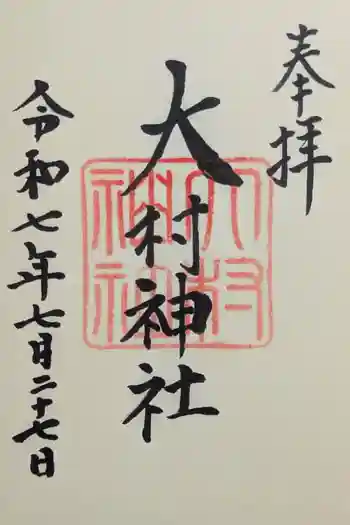 奉拝
大村神社
大村
神社
令和七年七月二十七日